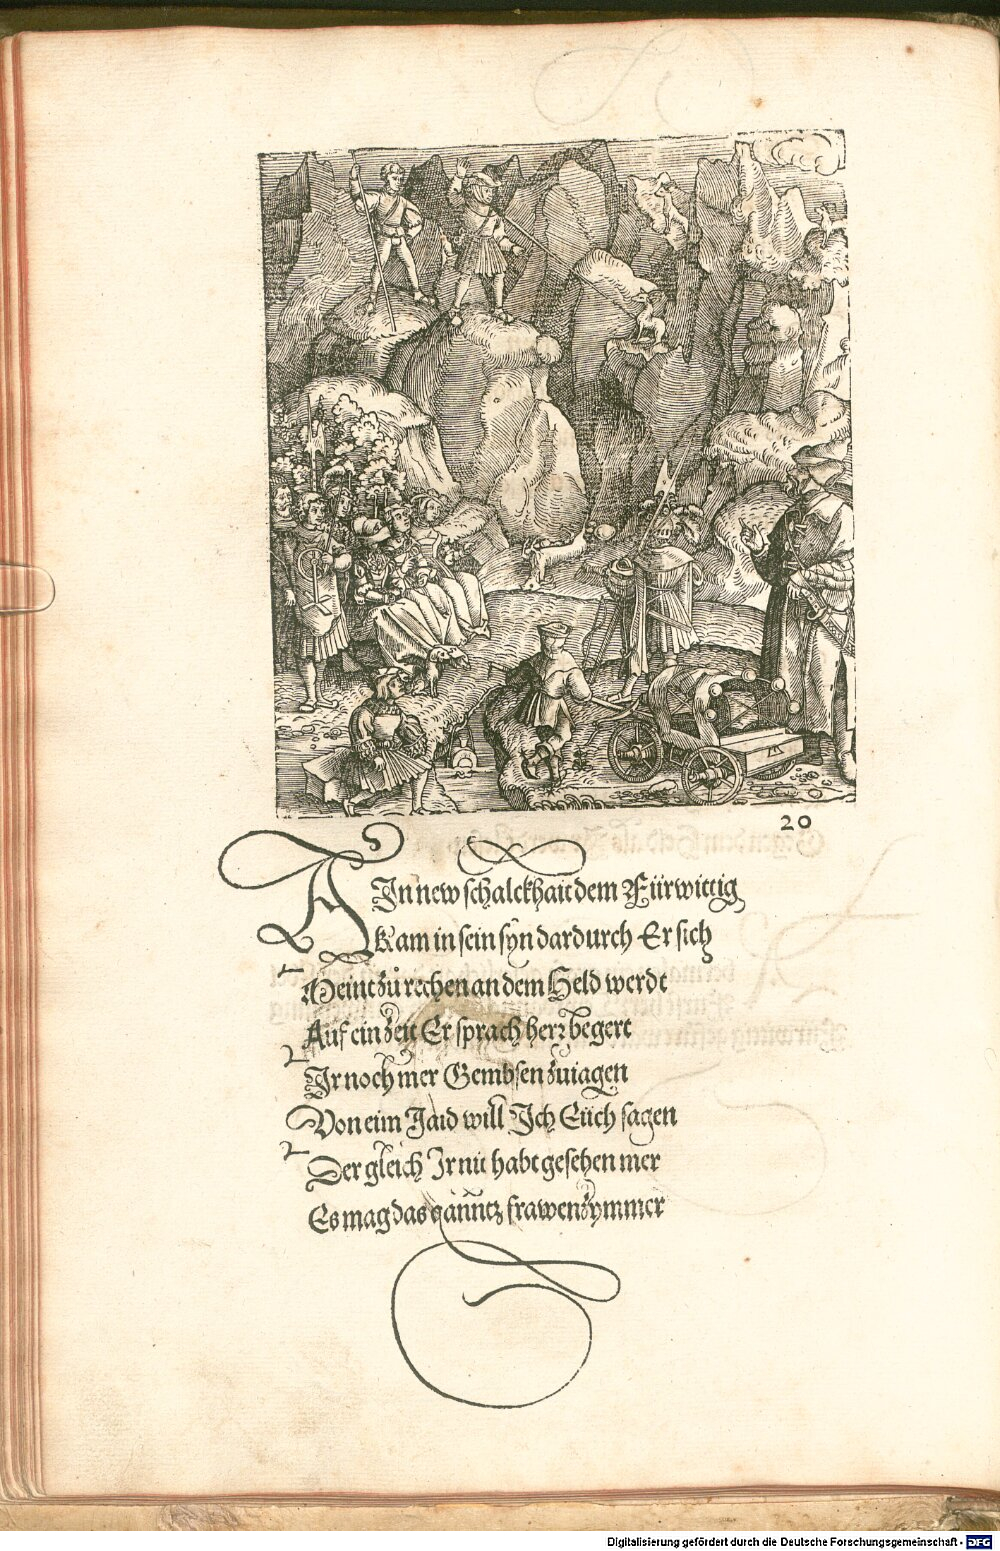 20
AIn new schalckhait dem Fürwittig
Kam in sein syn dardurch Er sich
Meint zů rechen an dem Held werdt
Auf ein zeit Er sprach herr begert
Ir noch mer Gembsen zuiagen
Von eim Jaid will Ich Eüch sagen
Der gleich Ir nit habt gesehen mer
Es mag das gänntz frawenzymmer
Digitalisierung gefördert durch die Deutsche Forschungsgemeinschaft - DFG